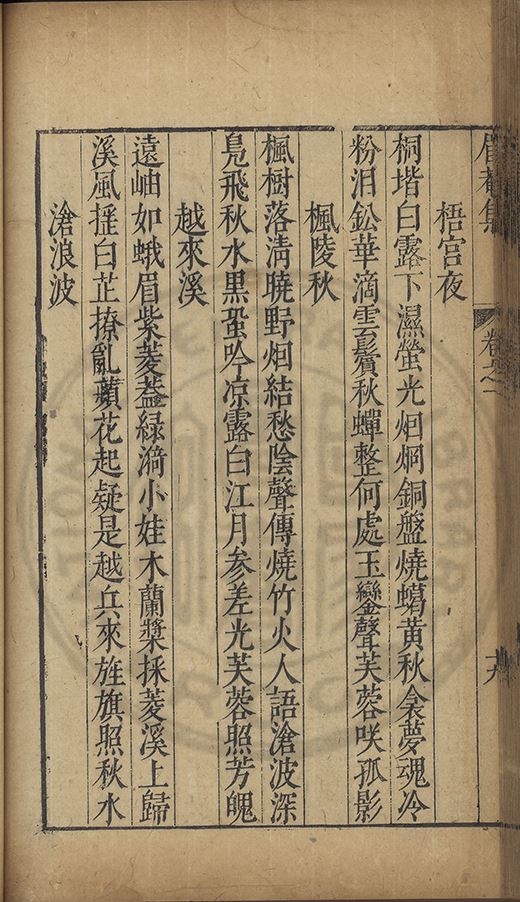 眉菴集 卷之一 十九
梧宮夜
桐堦白露下濕螢光炯炯銅盤燒蠍黃秋衾夢魂冷
粉泪鈆華滴雲鬟秋蟬整何處玉鑾聲芙蓉咲孤影
楓陵秋
楓樹落清曉野烟結愁陰聲傳燒竹火人語滄波深
鳬飛秋水黑蛩吟凉露白江月参差光芙蓉照芳魄
越來溪
遠岫如蛾眉紫菱葢綠漪小娃木蘭槳採菱溪上歸
溪風揺白芷撩亂蘋花起疑是越兵來旌旗照秋水
滄浪波